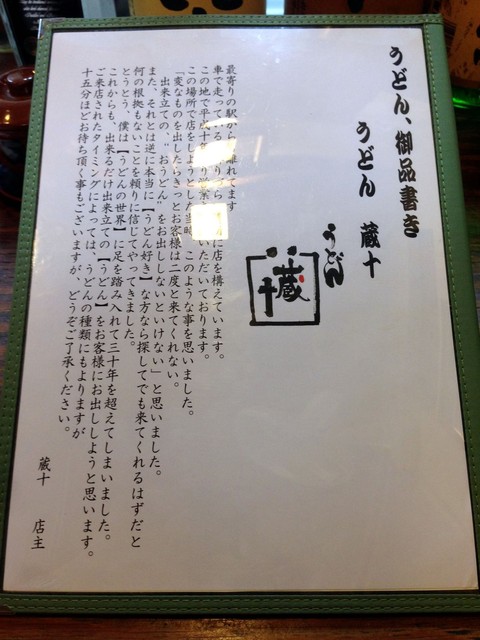 うどん、御品書き
うどん 蔵十
うどん
蔵十
最寄りの駅から 離れてます
車で走っている に店を構えています。
この地で平成十 営業 いただいております。
この場所で店をしようとした当時、このような事を思いました。
「変なものを出したらきっとお客様は二度と来てくれない。
出来立ての、”おうどん”をお出ししないといけない」と思いました。
また、それとは逆に本当に【うどん好き】な方なら探してでも来てくれるはずだと
何の根拠もないことを頼りに信じてやってきました。
とうとう、僕は【うどんの世界】に足を踏み入れて三十年を超えてしまいました。
これからも、出来るだけ出来立ての【うどん】をお客様にお出ししようと思います。
ご来店されたタイミングによっては、うどんの種類にもよりますが
十五分ほどお待ち頂く事もございますが、どうぞご了承ください。
蔵十 店主